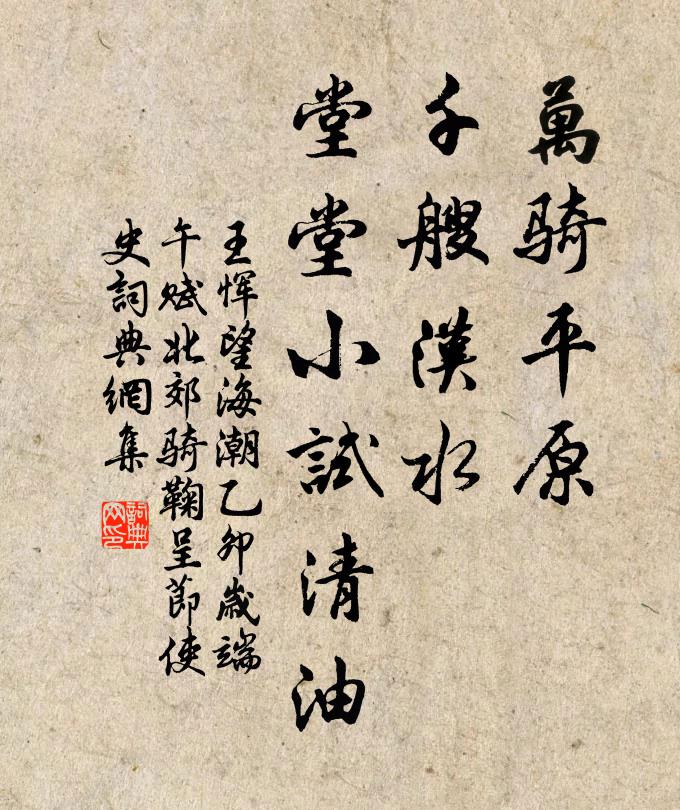 萬騎平原
千艘漢水
堂堂小試清油
王恽望海潮乙卯歲端
午賦北郊騎鞠呈節使
史詞典網集
詞典
网印